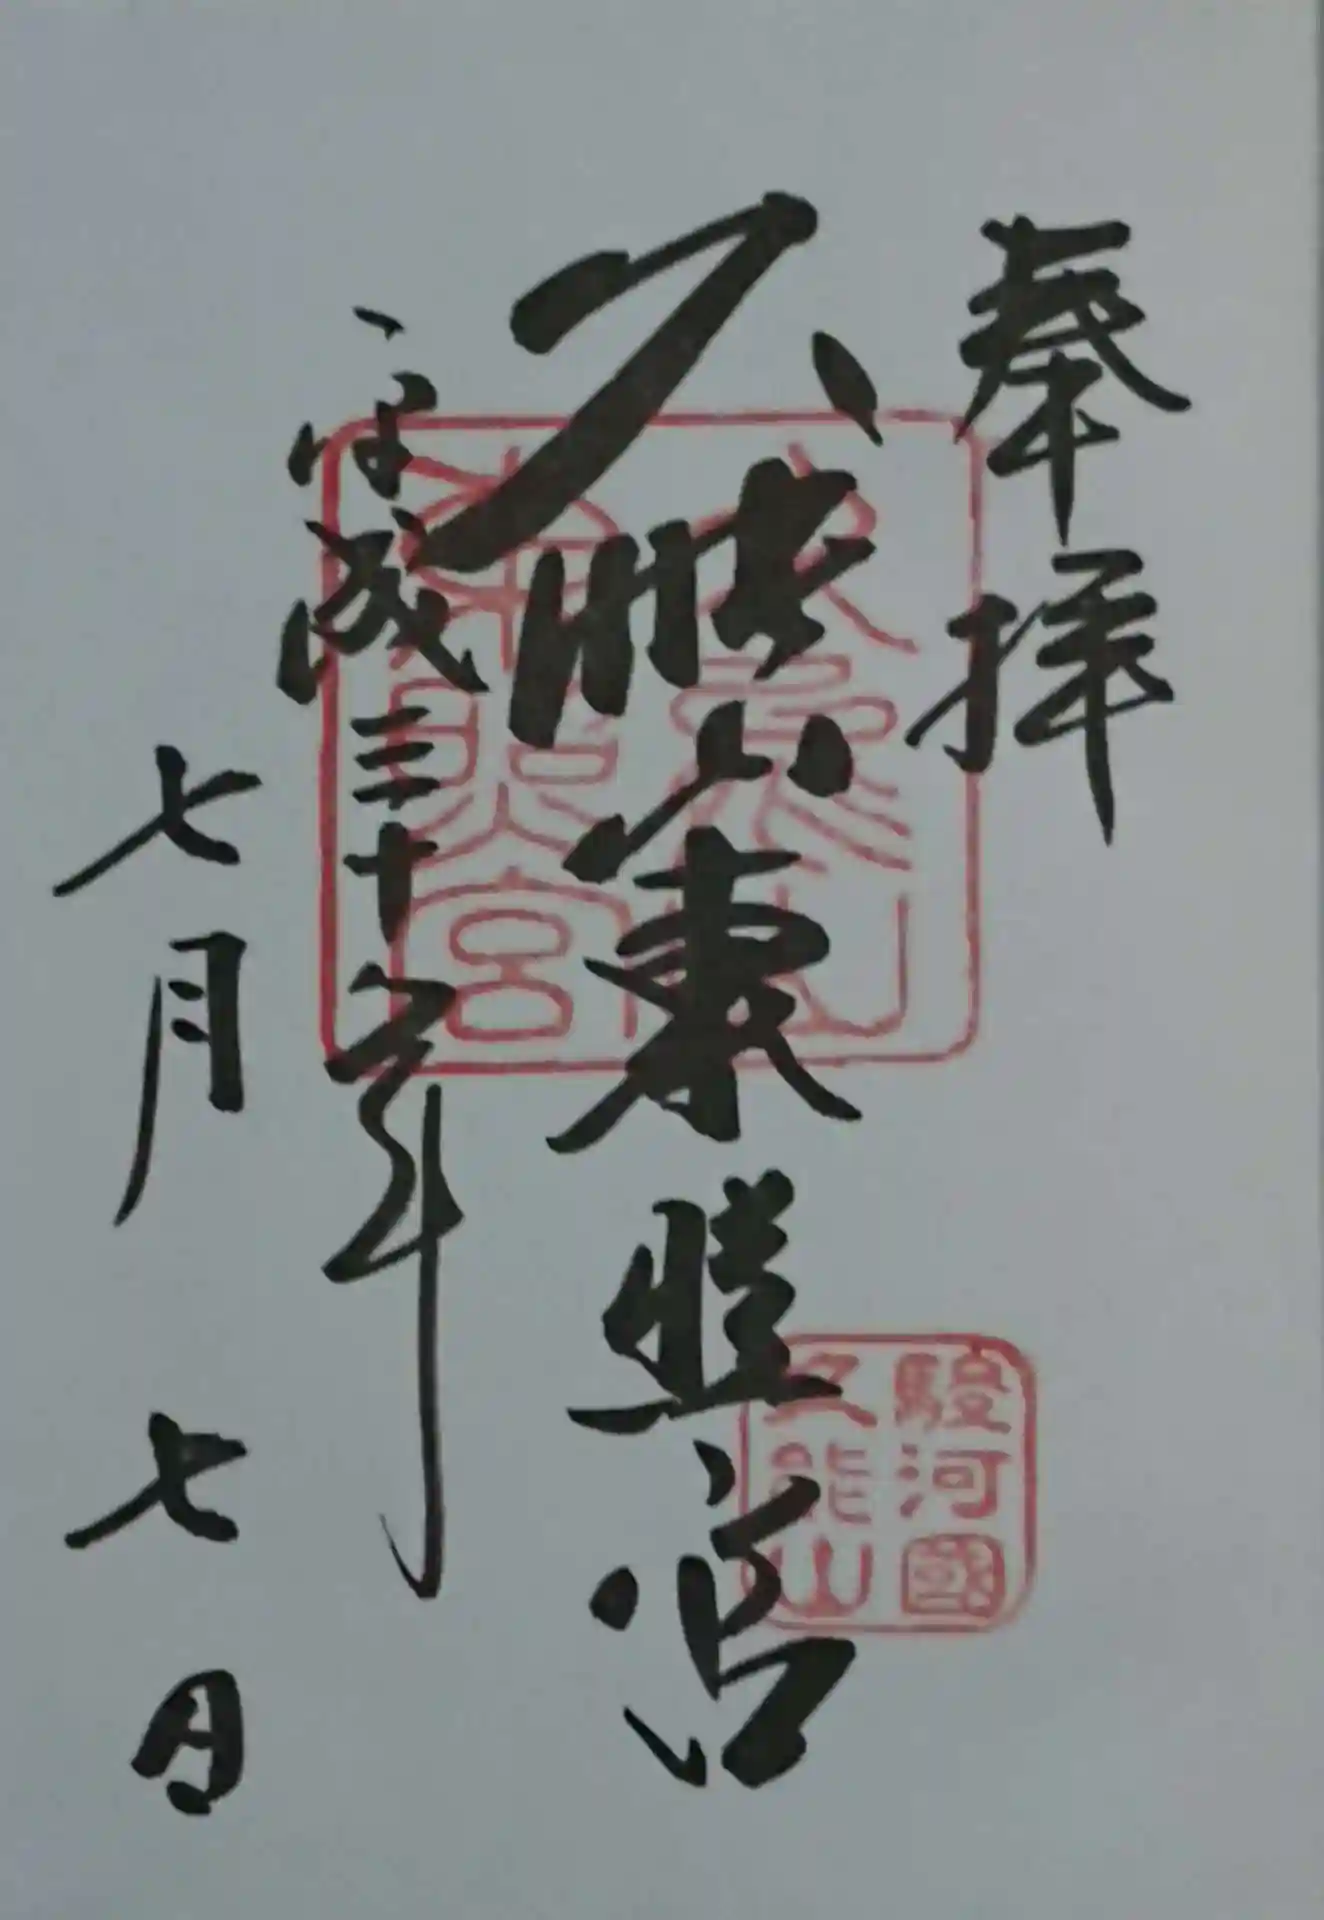 奉拝
久能山東照宮
平成三十年
七月七日
久能山
東照宮
駿河國
久能山